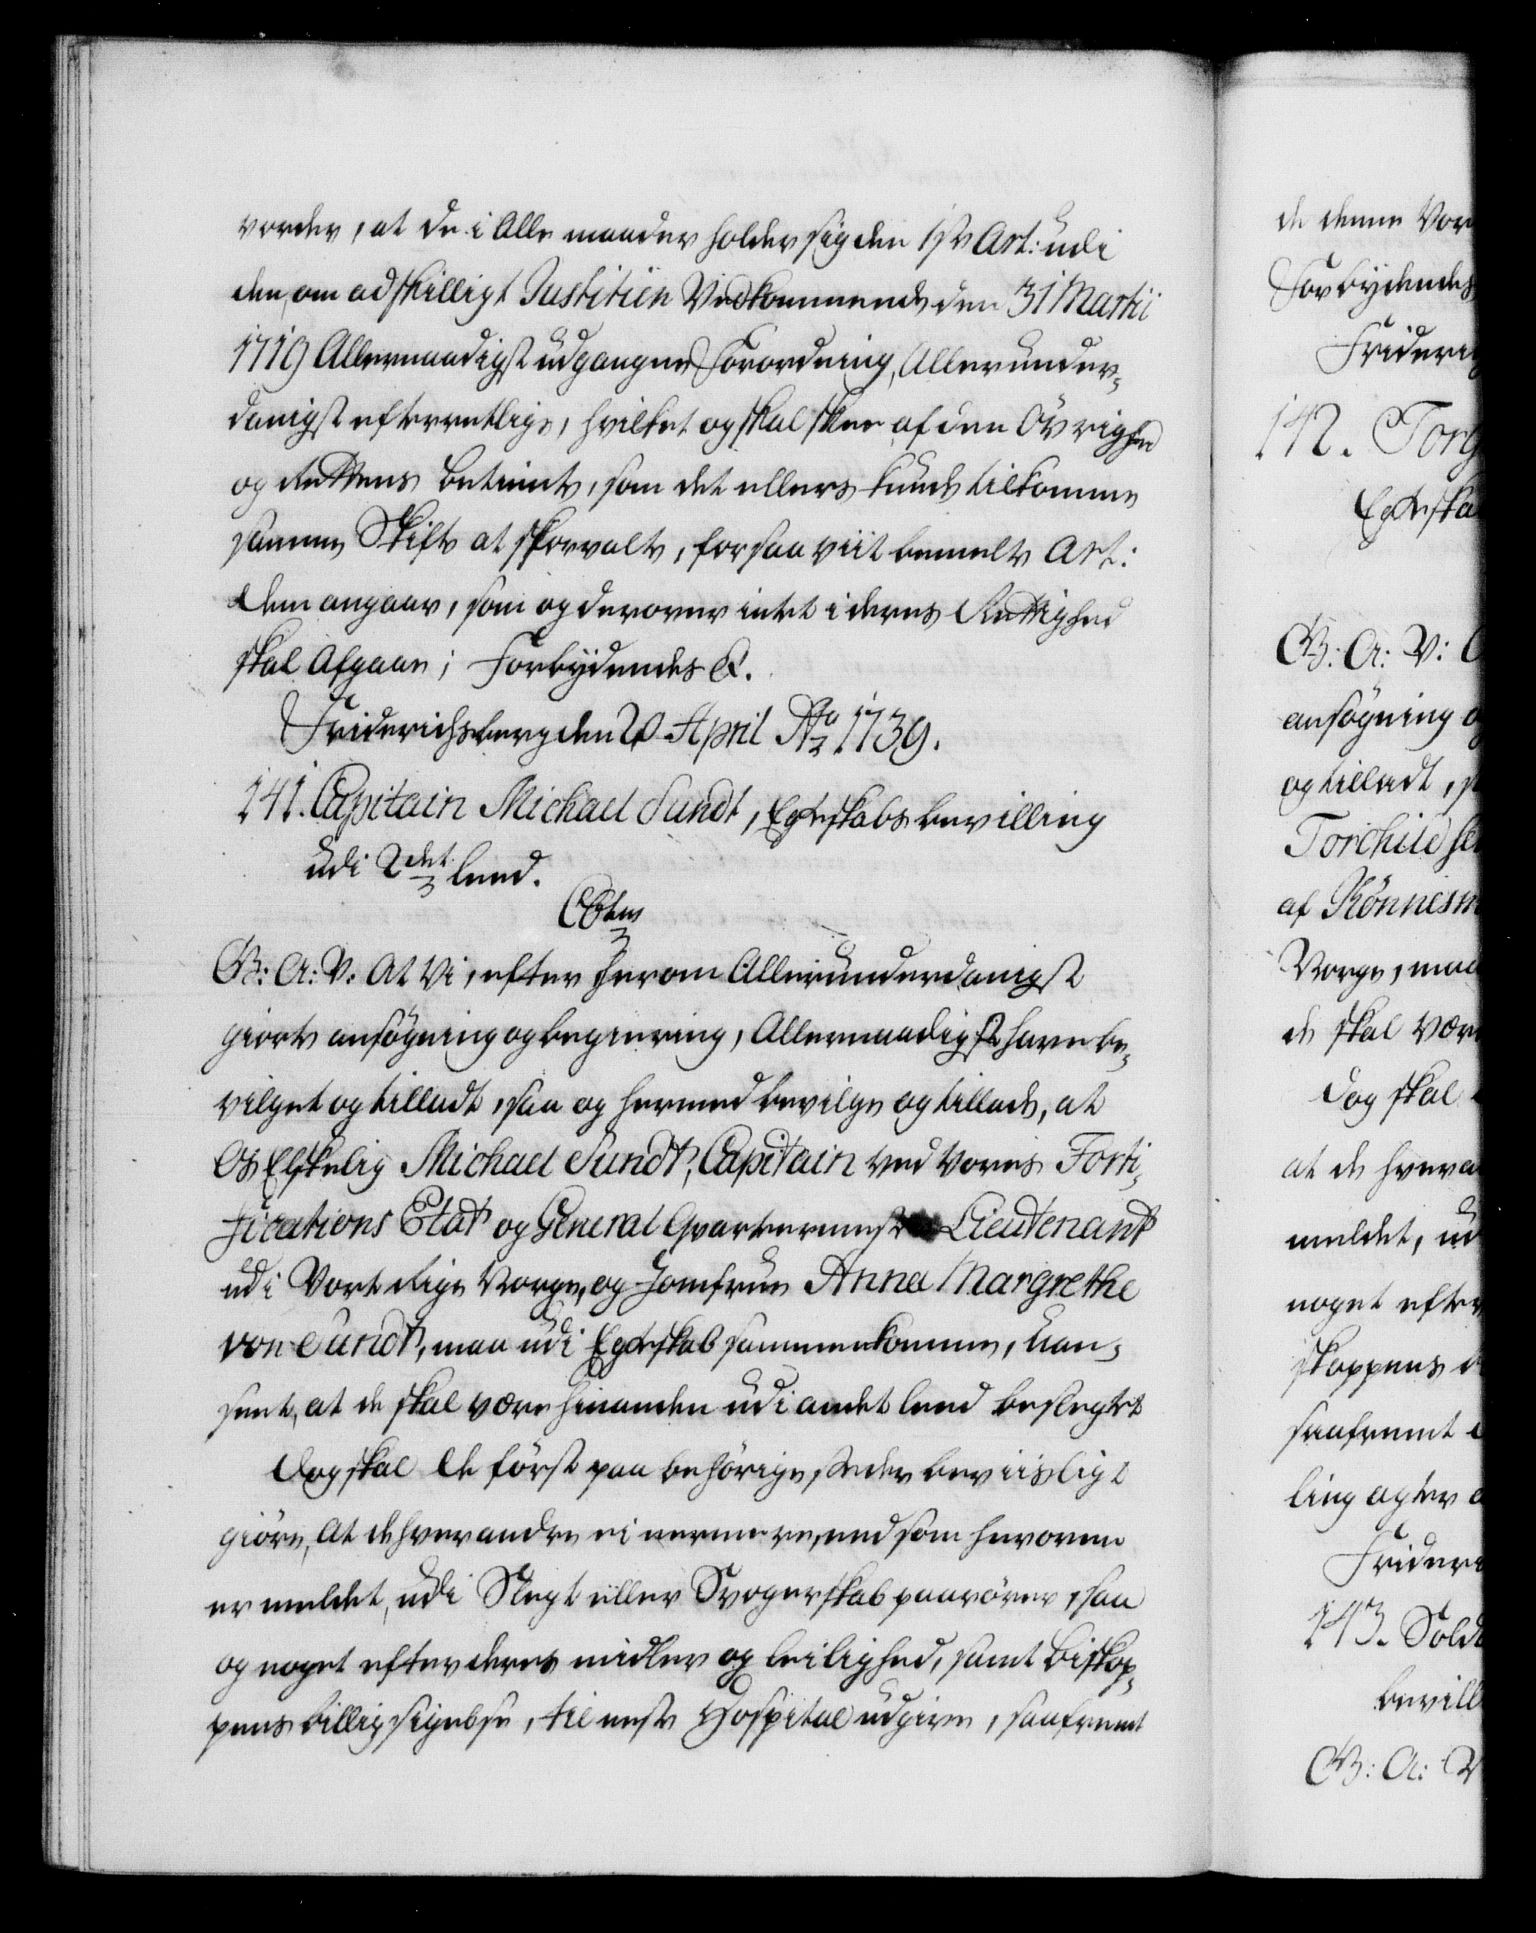 vorder, at de i Alle maader holder sig den 1ste Art: udi
den om adskilligt Justitien Vedkommende den 31 Martii
1719 Allernaadigst udgangne Forordning, Allerunder-
danigst efterretlige, hvilket og skal skee af den Øvrighed
og Rettens betiente, som det ellers kunde tilkomme
samme Skifte at forvalte, forsaa viit bemelte Art:
dem angaar, som og derover intet i deres Rettighed
skal Afgaae; Forbydendes &.
Friderichsberg den 20 April Ao 1739.
141. Capitain Michael Sundt, Egteskabs bevilling
udi 2det leed.
C6tus
G: A: V: At Vi, efter herom Allerunderdanigst
giorte ansøgning og begiering, Allernaadigst have be-
vilget og tilladt, saa og hermed bevilge og tillade, at
Os Elskelig Michael Sundt, Capitain ved Vores Forti-
fications Etat og General Qvarteermester Lieutenant
udi Vort Rige Norge, og Jomfrue Anna Margrethe
von Sundt, maa udi Egteskab sammenkomme, uan-
seet, at de skal være hinanden udi andet leed beslegtet
Dog skal de først paa behørige stæder beviisligt
giøre, At de hverandre ei nermere, end som hermed
er meldet, udi Slegt eller Svogerskab paarører, saa
og noget efter deres midler og leilighed, samt Biskop-
pens billig sigelse, til neste Hospital udgive, saafremt
de denne Vor
Forbydendes
Frideric
142. Torg
Egteska
G: A: V:
ansøgning o
og tilladt, s
Torchild se
af Rønnesm
Norge, maa
de skal vær
Dog skal
at de hvera
meldet, ud
noget efter
skoppens
saafremt
ling agter
Frideri
143. Solda
bevill
G: A: V